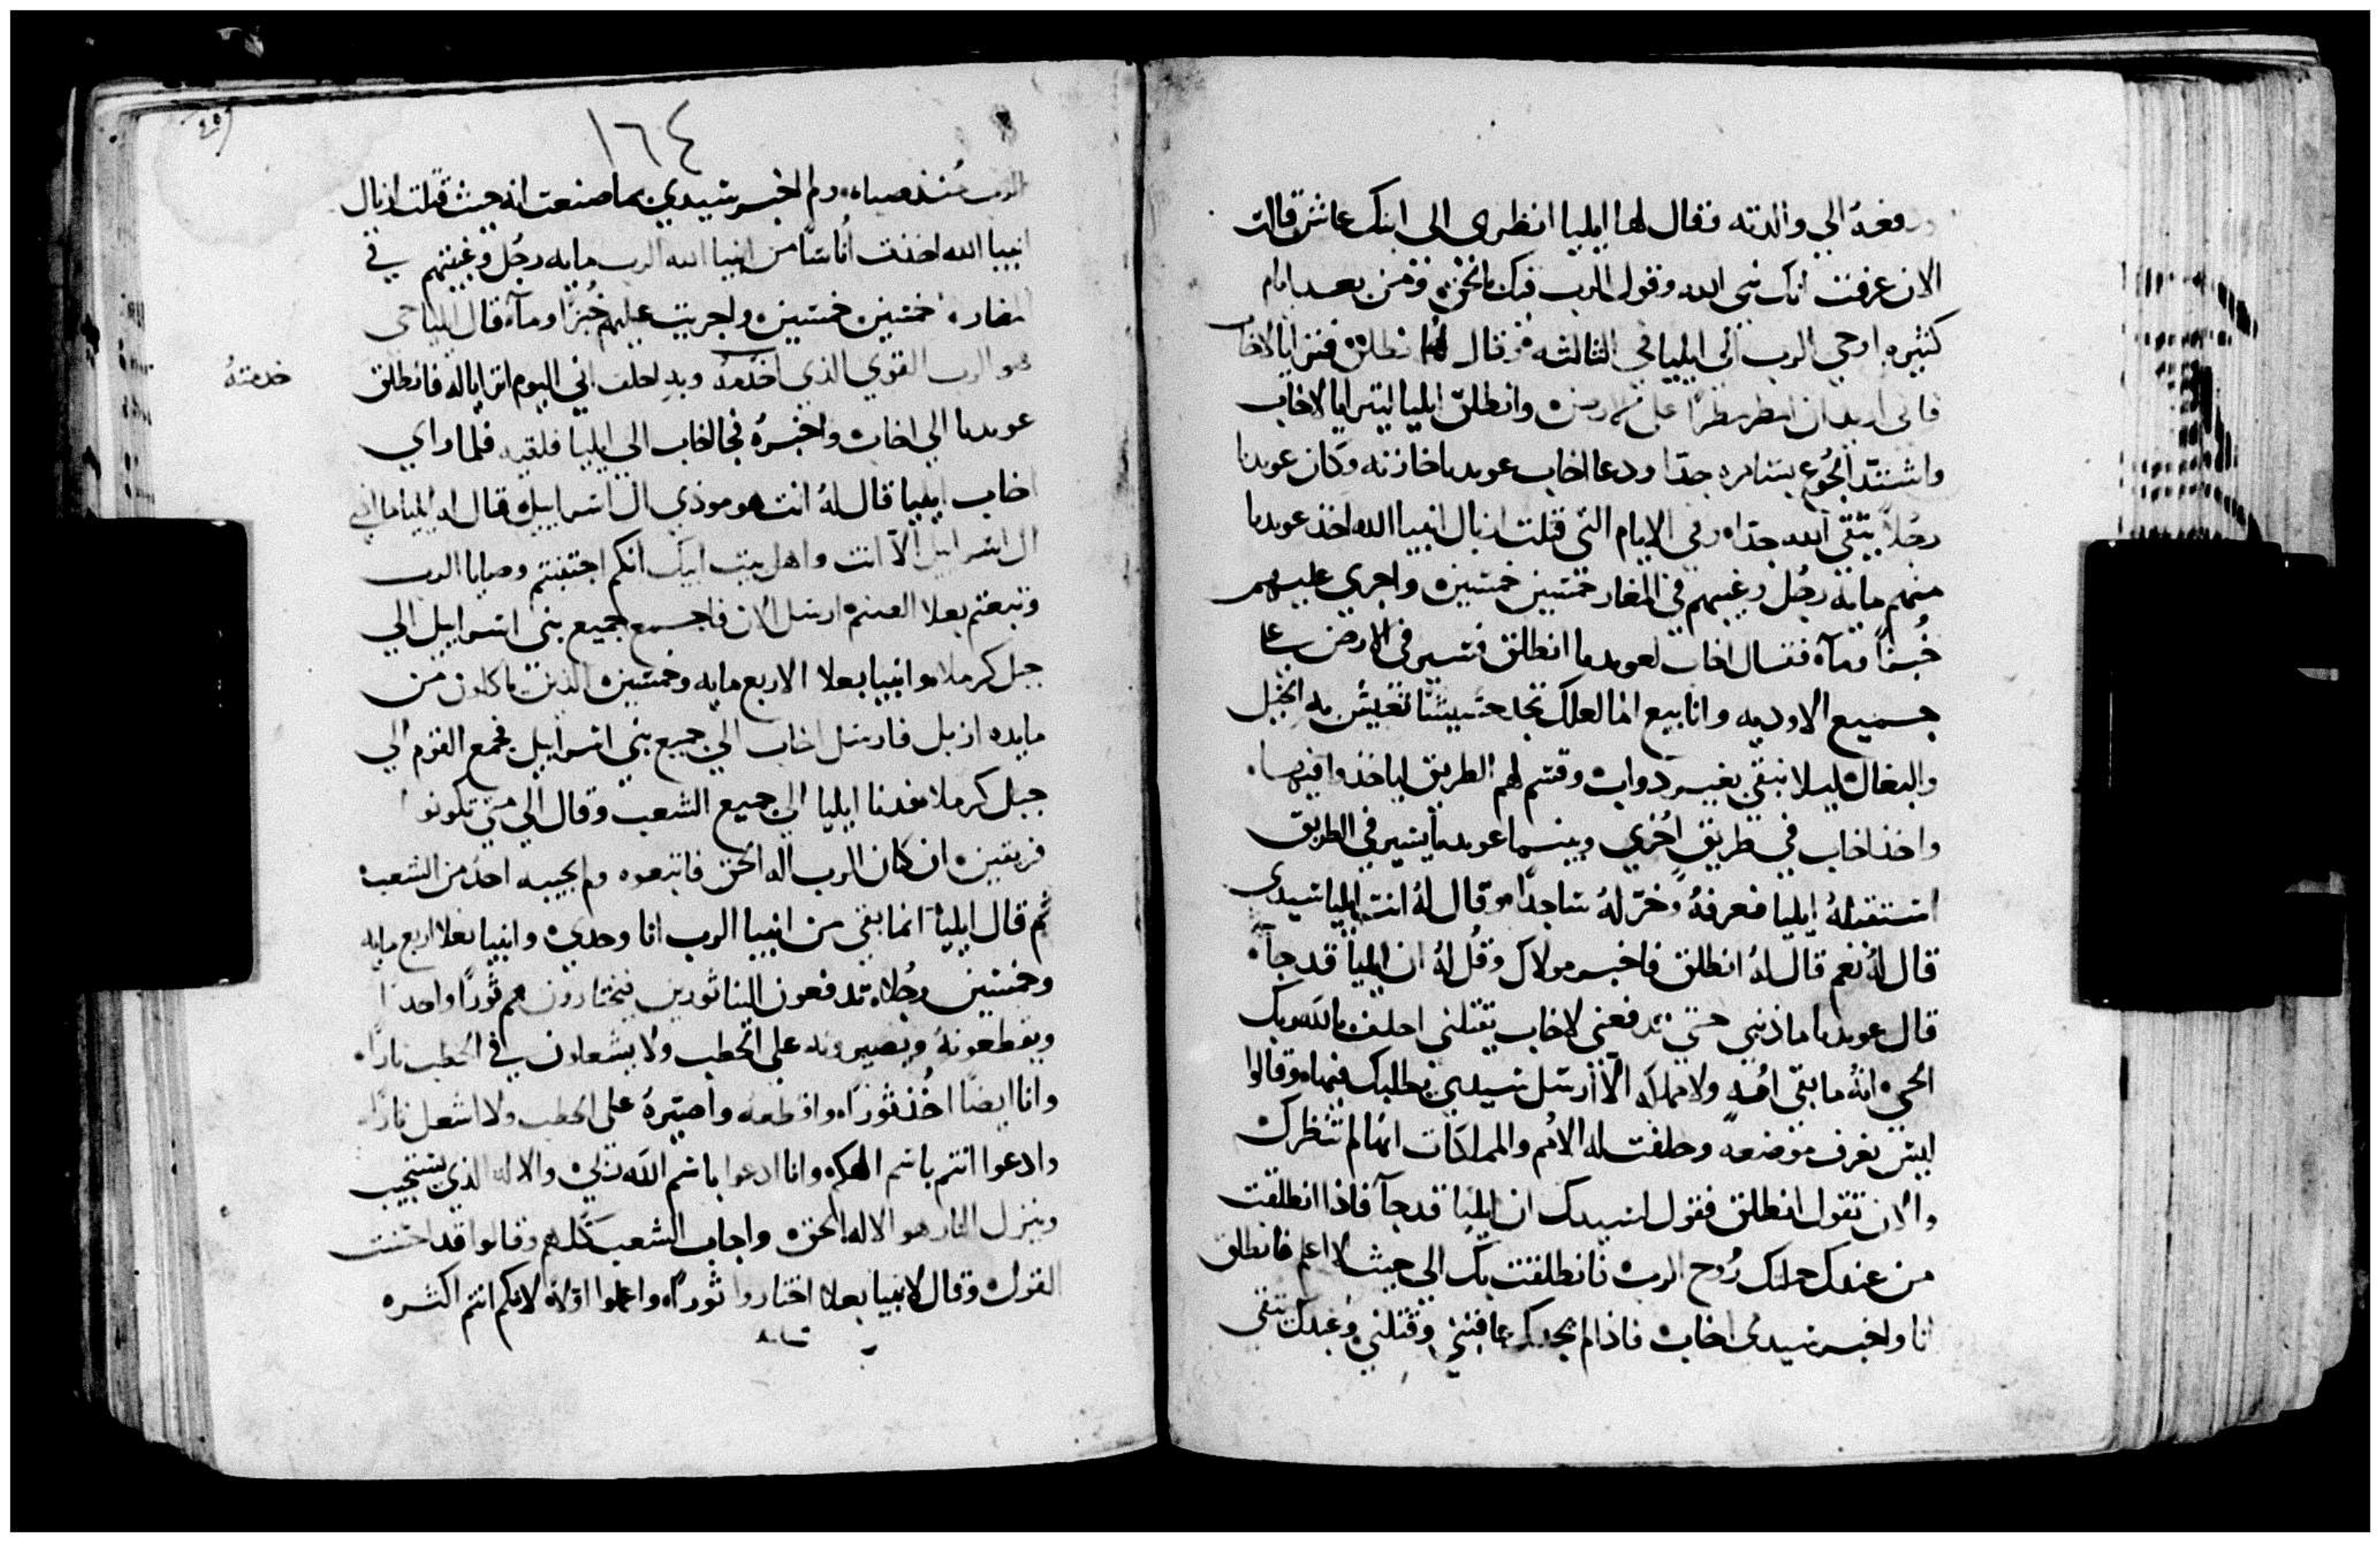 ودفعهُ الي والدته فقال لها ايليا انظري الى ابنك عاش قالت
الان عرفت انك نبي الله وقول الرب فيك بالحق ومن بعد ايام
كثيره اوحي الرب الى ايليا في الثالثه وقال انطلق فترايا لاخاب
فاني اريد ان امطر مطرًا على الارض وانطلق ايليا ليترايا لاخاب
واشتدّ الجُوع بسامره جدّا ودعا اخاب عوبديا خازنه وكان عوبديا
رجلاً يتقي الله جدّا وفي الايام التي قتلت ازبال انبيا الله اخذ عوبديا
منهم مايه رجُل وغيبهم في المغار خمسين خمسين واجري عليهم
خُبزًا ومآء فقال اخاب لعوبديا انطلق فتسير في الارض علي
جميع الاوديه وانابيع الما لعلك تجد حشيشًا تعيش به الخيل
والبغال ليلا نبقي بغير دواب وقسم لهم الطريق لياخذوا فيها
واخذ اخاب في طريق اُخري وبينما عوبديا يسير في الطريق
استقبلهُ ايليا فعرفهُ وخرّ لهُ ساجدًا وقال لهُ انت ايليا سيدي
قال لهُ نعم قال لهُ انطلق فاخبر مولاك وقُل لهُ ان ايليا قد جآء
قال عوبديا ما ذنبي حتي تدفعني لاخاب يقتلني احلف بالله ربك
الحي انهُ ما بقي امّه ولا مملكه الاّ ارسل سيدي يطلبك فيها وقالوا
ليس نعرف موضعه وحلفت له الاُمم والمملكات انها لم تنظرك
والان تقول انطلق فقول لسيدك ان ايليا قد جآ فاذا انطلقت
من عندك حملك رُوح الرب فانطلقت بك الي حيث لا اعلم فانطلق
انا واخبر سيدي اخاب فاذا لم يجدك عاقبني وقتلني وعبدك تقي
١٦٤
الرب مُنذ صباه ولم اخبر سيدي بما صنعت انه حيث قتلت ازبال
انبيا الله اخذت اُناسًا من انبيا الله الرب مايه رجُل وغيبتهم في
المغاره خمسين خمسين واجريت عليهم خُبزًا ومآء قال ايليا حي
هو الرب القوي الذي اخدمهُ وبه احلف اني اليوم اترايا له فانطلق
خدمتهُ
عوبديا الي اخاب واخبرهُ فجا اخاب الي ايليا فلقيه فلما راي
اخاب ايليا قال لهُ انت هو موذي ال اسراييل قال له ايليا ما اذي
ال اسراييل الاّ انت واهل بيت ابيك انكم اجتنبتم وصايا الرب
وتبعتم بعلا الصنم ارسل الان فاجمع جميع بني اسراييل الي
جبل كرملا وانبيا بعلا الاربع مايه وخمسين الذين ياكلون من
مايده ازبل فارسل اخاب الي جميع بني اسراييل فجمع القوم الي
جبل كرملا فدنا ايليا الي جميع الشعب وقال الي متي تكونوا
فريقين ان كان الرب اله الحق فاتبعوه ولم يجيبه احد من الشعب
ثم قال ايليا انما بقي من انبيا الرب انا وحدي وانبيا بعلا اربع مايه
وخمسين رجُلا تدفعون الينا ثورين فيختارون هم ثورًا واحدًا
ويقطعونهُ ويصيرونه على الحطب ولا يشعلون في الحطب نارًا
وانا ايضًا اخُذ ثورًا واقطعه واصيّرهُ على الحطب ولا اشعل نارًا
وادعوا انتم باسم الهكم وانا ادعوا باسم الله ربي والاله الذي يستجيب
وينزل النار هو الاله الحق واجاب الشعب كلهم وقالوا قد احسنت
القول وقال لانبيا بعلا اختاروا ثورًا واعملوا اولاً لانكم انتم اكثره